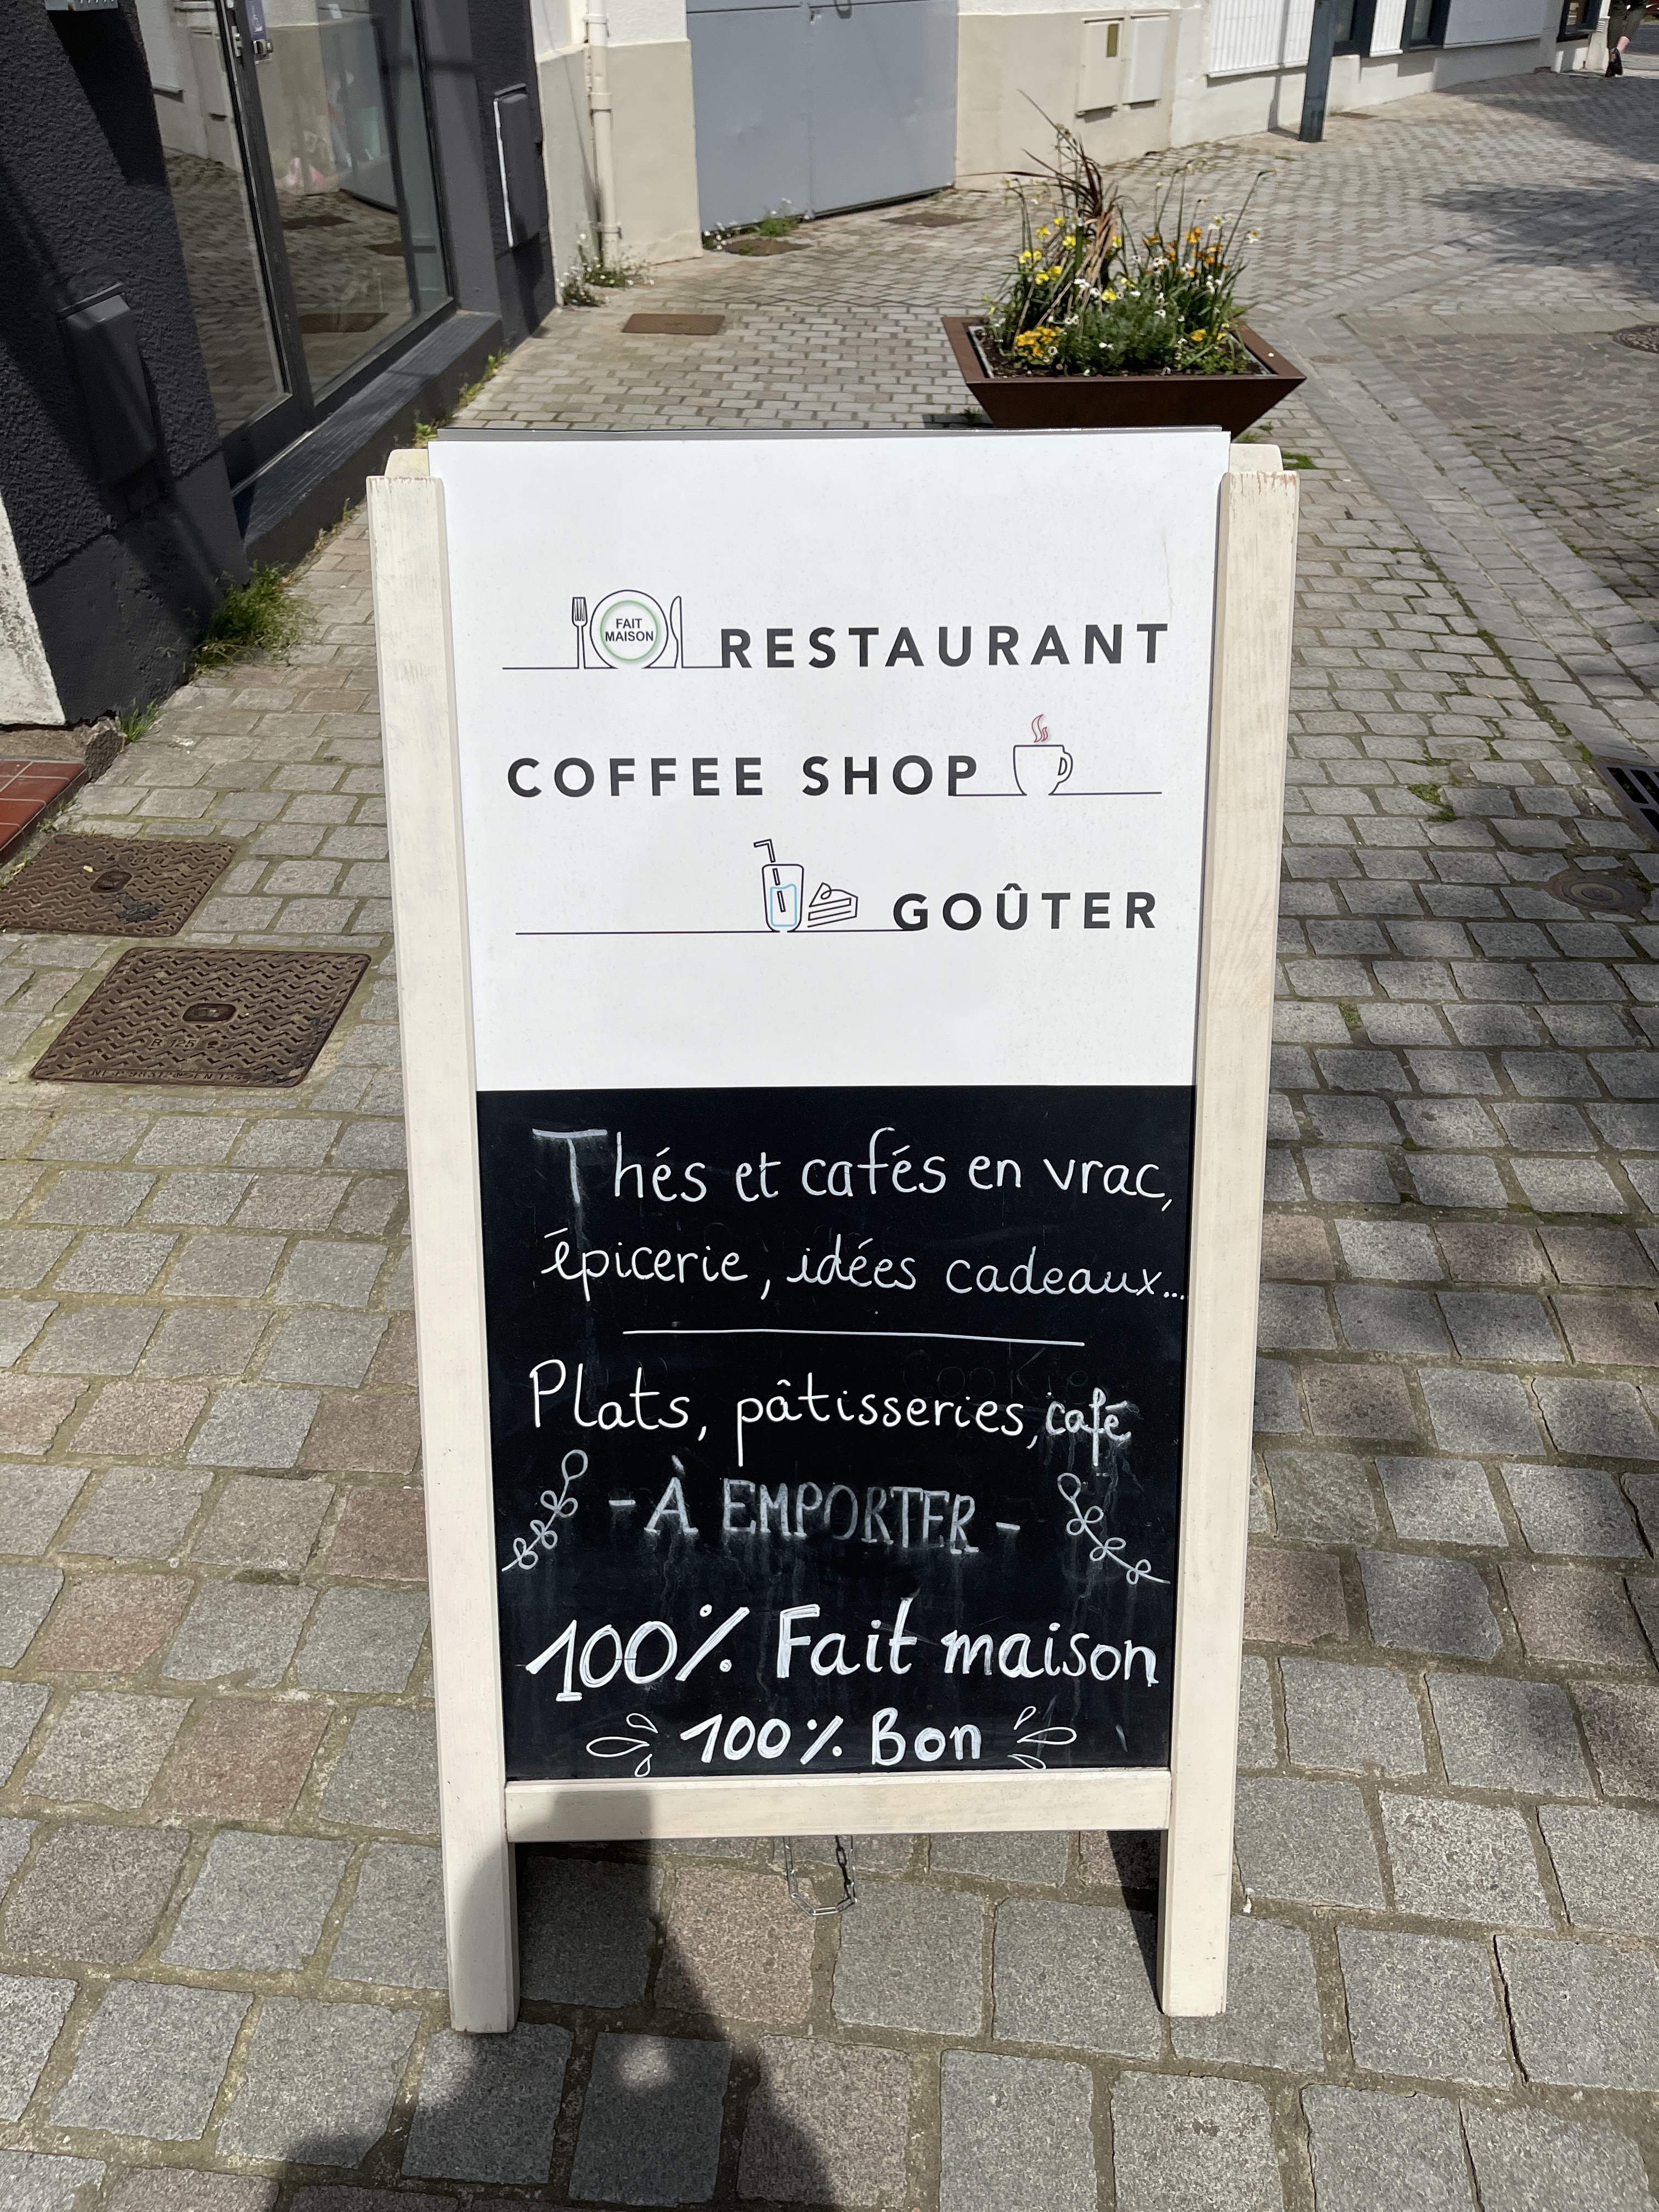 FAIT
MAISON
RESTAURANT
COFFEE SHOP
GOÛTER
Thés et cafés en vrac,
épicerie, idées cadeaux...
Plats, pâtisseries, café
- À EMPORTER -
100% Fait maison
100% Bon
B 125